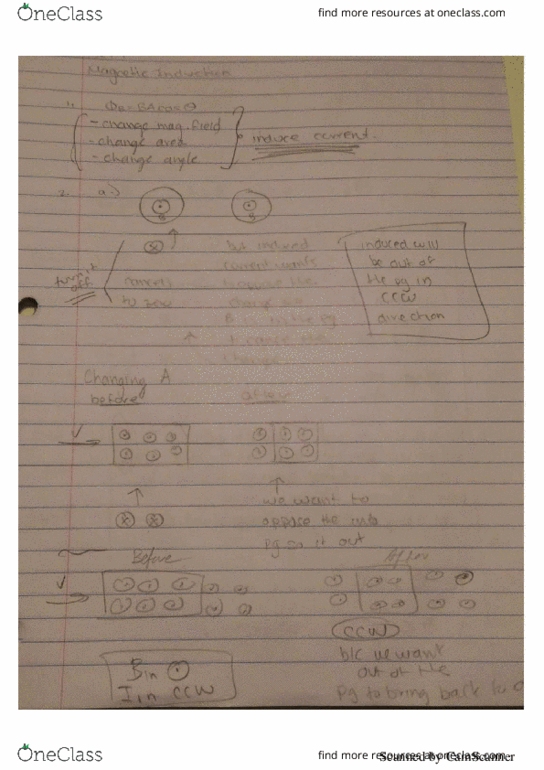 OneClass
find more resources at oneclass.com
Magnetic Induction
1. ΦB = BA cos θ
- change mag. field
- change area
- change angle
induce current.
2. a.)
but induced
induced will
be out of
the pg in
CCW
direction
turn it
off
current wants
B
the pg
Changing A
before
after
we want to
oppose the into
pg so it out
Before
After
CCW
b/c we want
out of the
pg to bring back to
Bin
I in CCW
OneClass
find more resources at oneclass.com
Scanned by CamScanner